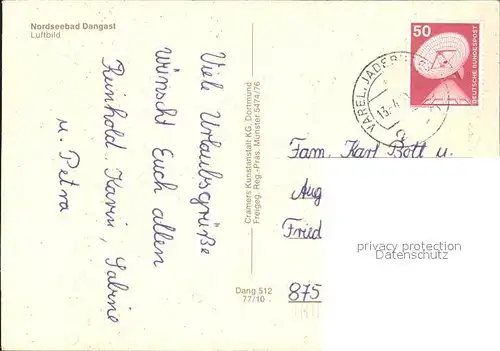 Nordseebad Dangast
Luftbild
Viele Urlaubsgrüße
wünscht Euch allen
Reinhold, Karin, Sabine
u. Petra
Cramers Kunstanstalt KG, Dortmund
Freigeg. Reg.-Präs. Münster 5474/76
Dang 512
77/10
50
DEUTSCHE BUNDESPOST
VAREL, JADEB
13.-4.
a
Fam. Karl Bott u.
Aug
Fried
875
privacy protection
Datenschutz